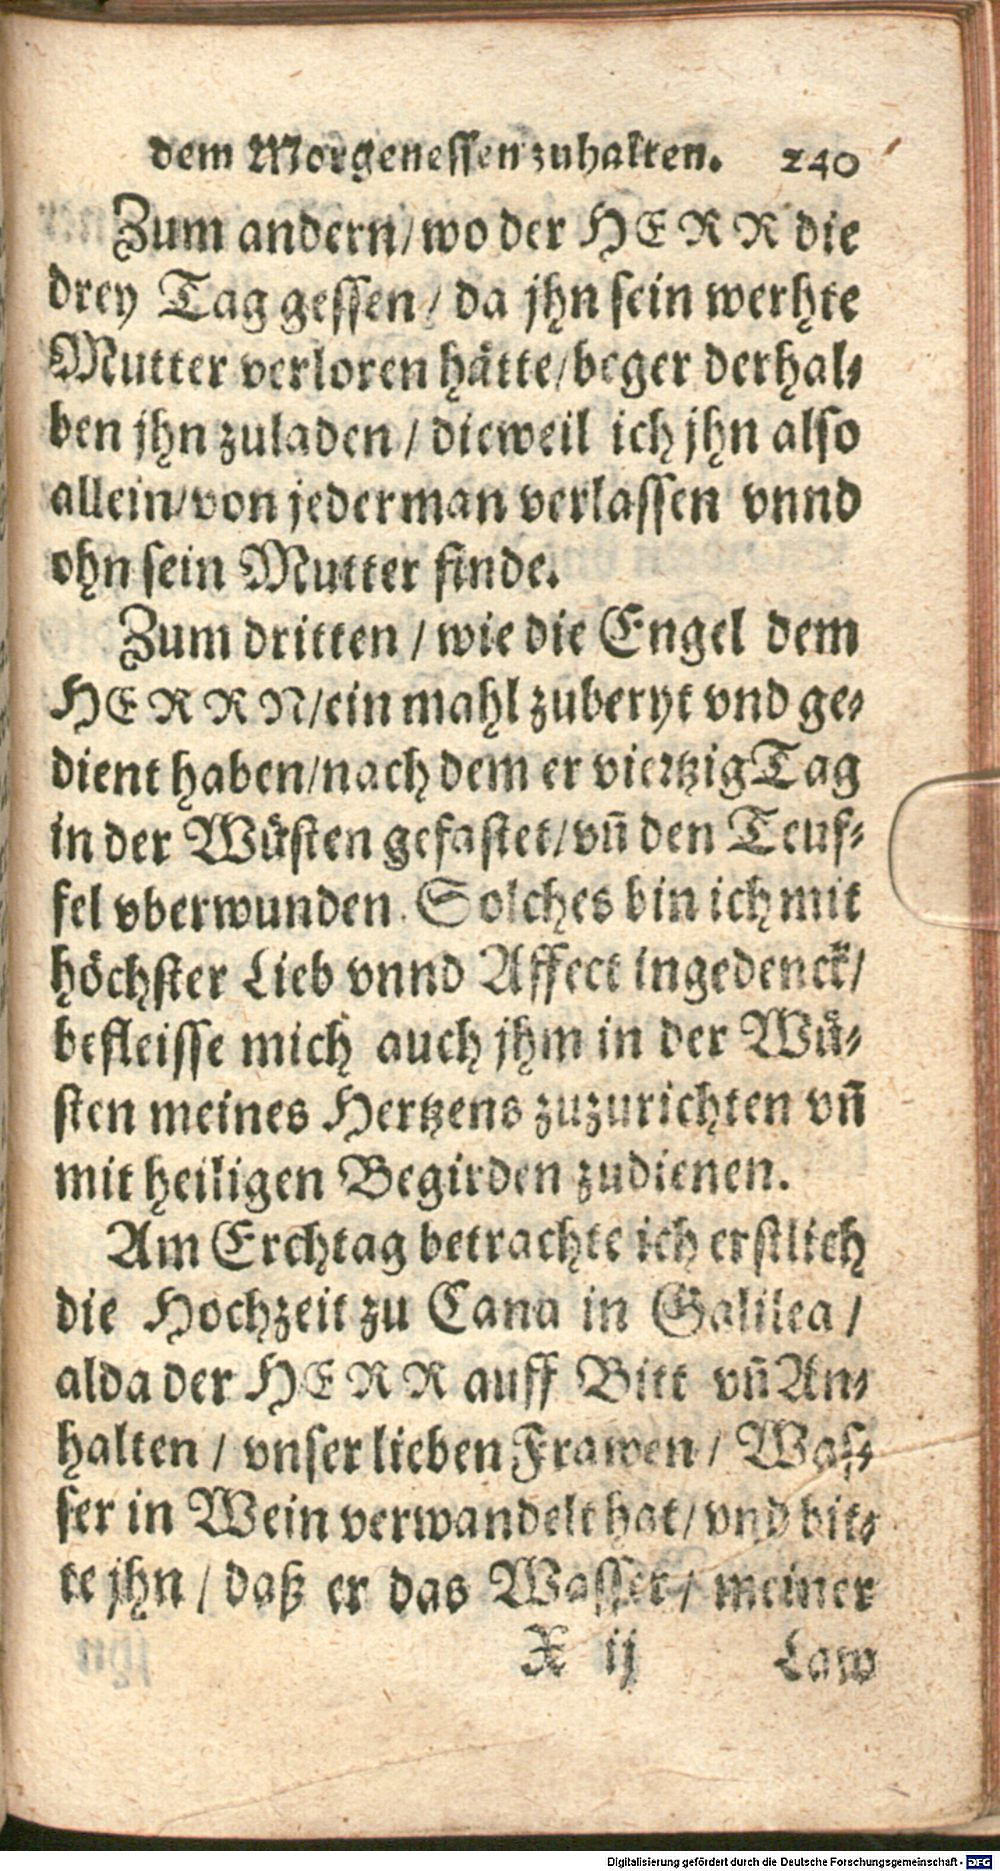 dem Morgenessen zuhalten. 240
Zum andern/ wo der HERR die
drey Tag gessen/ da jhn sein werhte
Mutter verloren hätte/ beger derhal⸗
ben jhn zuladen/ dieweil ich jhn also
allein/ von jederman verlassen vnnd
ohn sein Mutter finde.
Zum dritten/ wie die Engel dem
HERRN/ ein mahl zuberyt vnd ge⸗
dient haben/ nach dem er viertzig Tag
in der Wüsten gefastet/ vñ den Teuf⸗
fel vberwunden. Solches bin ich mit
höchster Lieb vnnd Affect ingedenck/
befleisse mich auch jhm in der Wü⸗
sten meines Hertzens zuzurichten vñ
mit heiligen Begirden zudienen.
Am Erchtag betrachte ich erstlich
die Hochzeit zu Cana in Galilea/
alda der HERR auff Bitt vñ An⸗
halten/ vnser lieben Frawen/ Was⸗
ser in Wein verwandelt hat/ vnd bit⸗
te jhn/ daß er das Wasser/ meiner
X ij Law
Digitalisierung gefördert durch die Deutsche Forschungsgemeinschaft - DFG